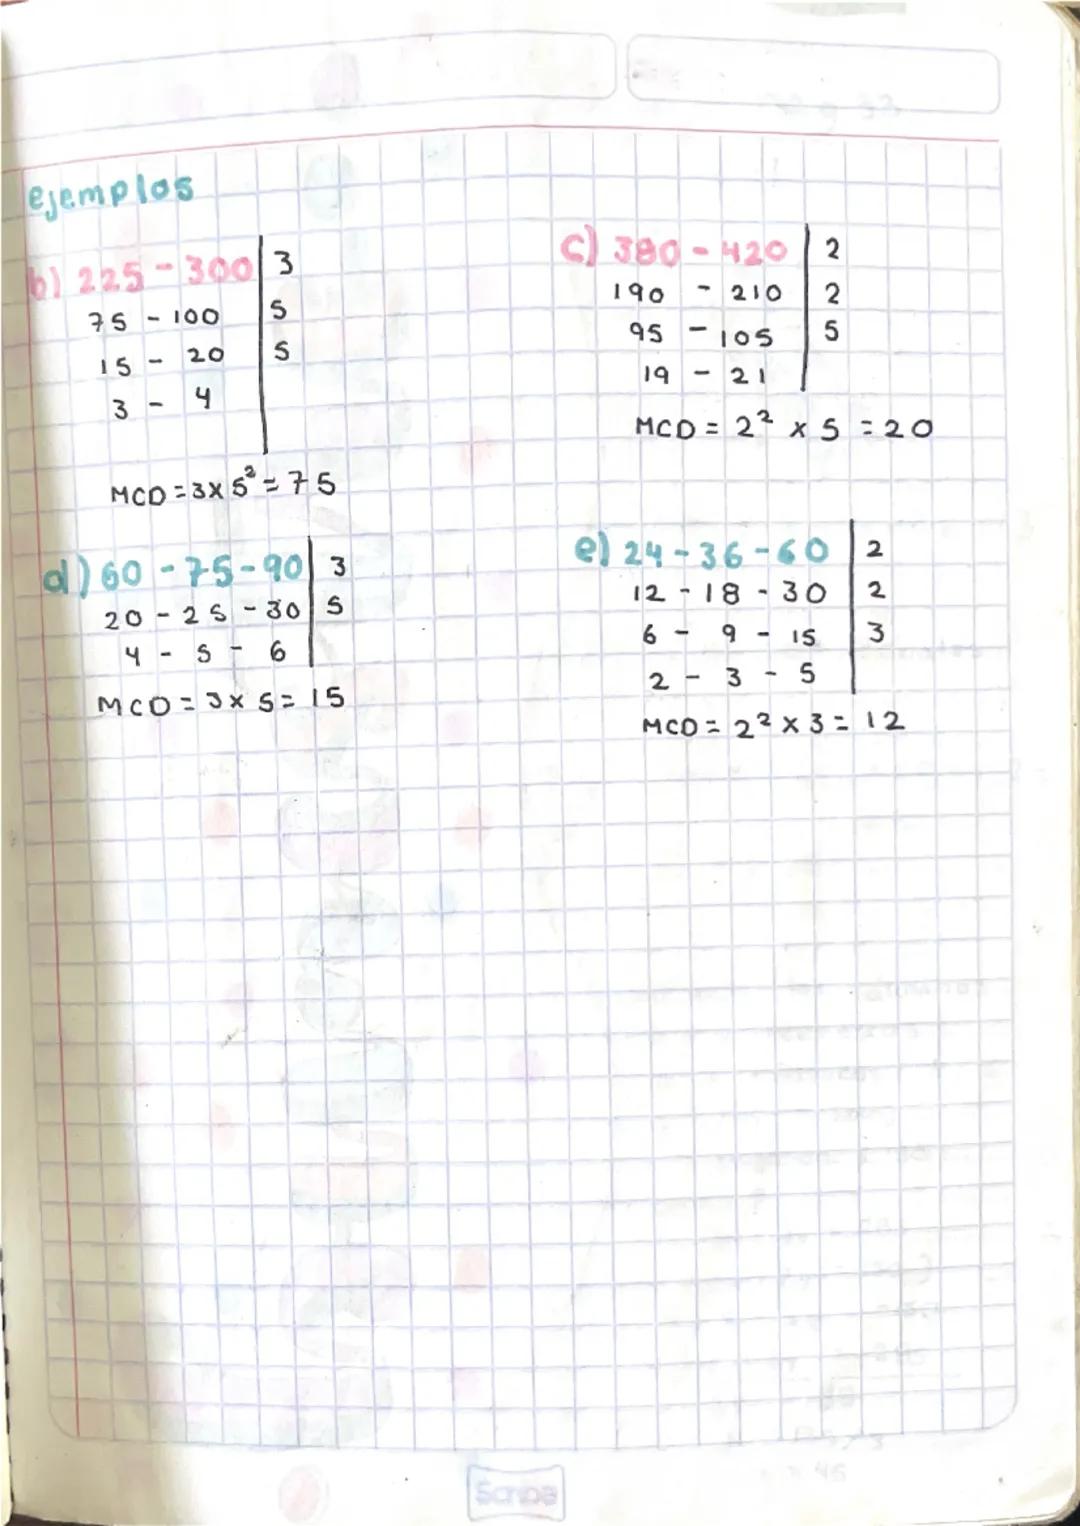 ejemplos
b) 225 - 300 | 3
75 - 100 | 5
15 - 20 | 5
3 - 4
MCD = 3 x 5² = 75
c) 380 - 420 | 2
190 - 210 | 2
95 - 105 | 5
19 - 21
MCD = 2² x 5 = 20
d) 60 - 75 - 90 | 3
20 - 25 - 30 | 5
4 - 5 - 6
MCD = 3 x 5 = 15
e) 24 - 36 - 60 | 2
12 - 18 - 30 | 2
6 - 9 - 15 | 3
2 - 3 - 5
MCD = 2² x 3 = 12
Scribe